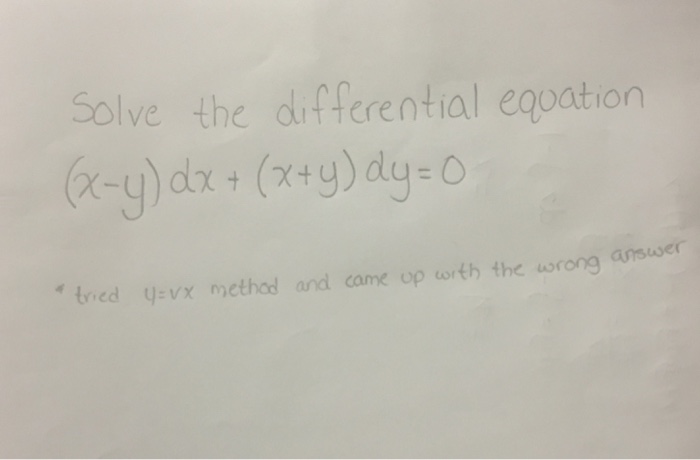 Solve the differential equation
(x-y)dx + (x+y)dy=0
* tried y=vx method and came up with the wrong answer